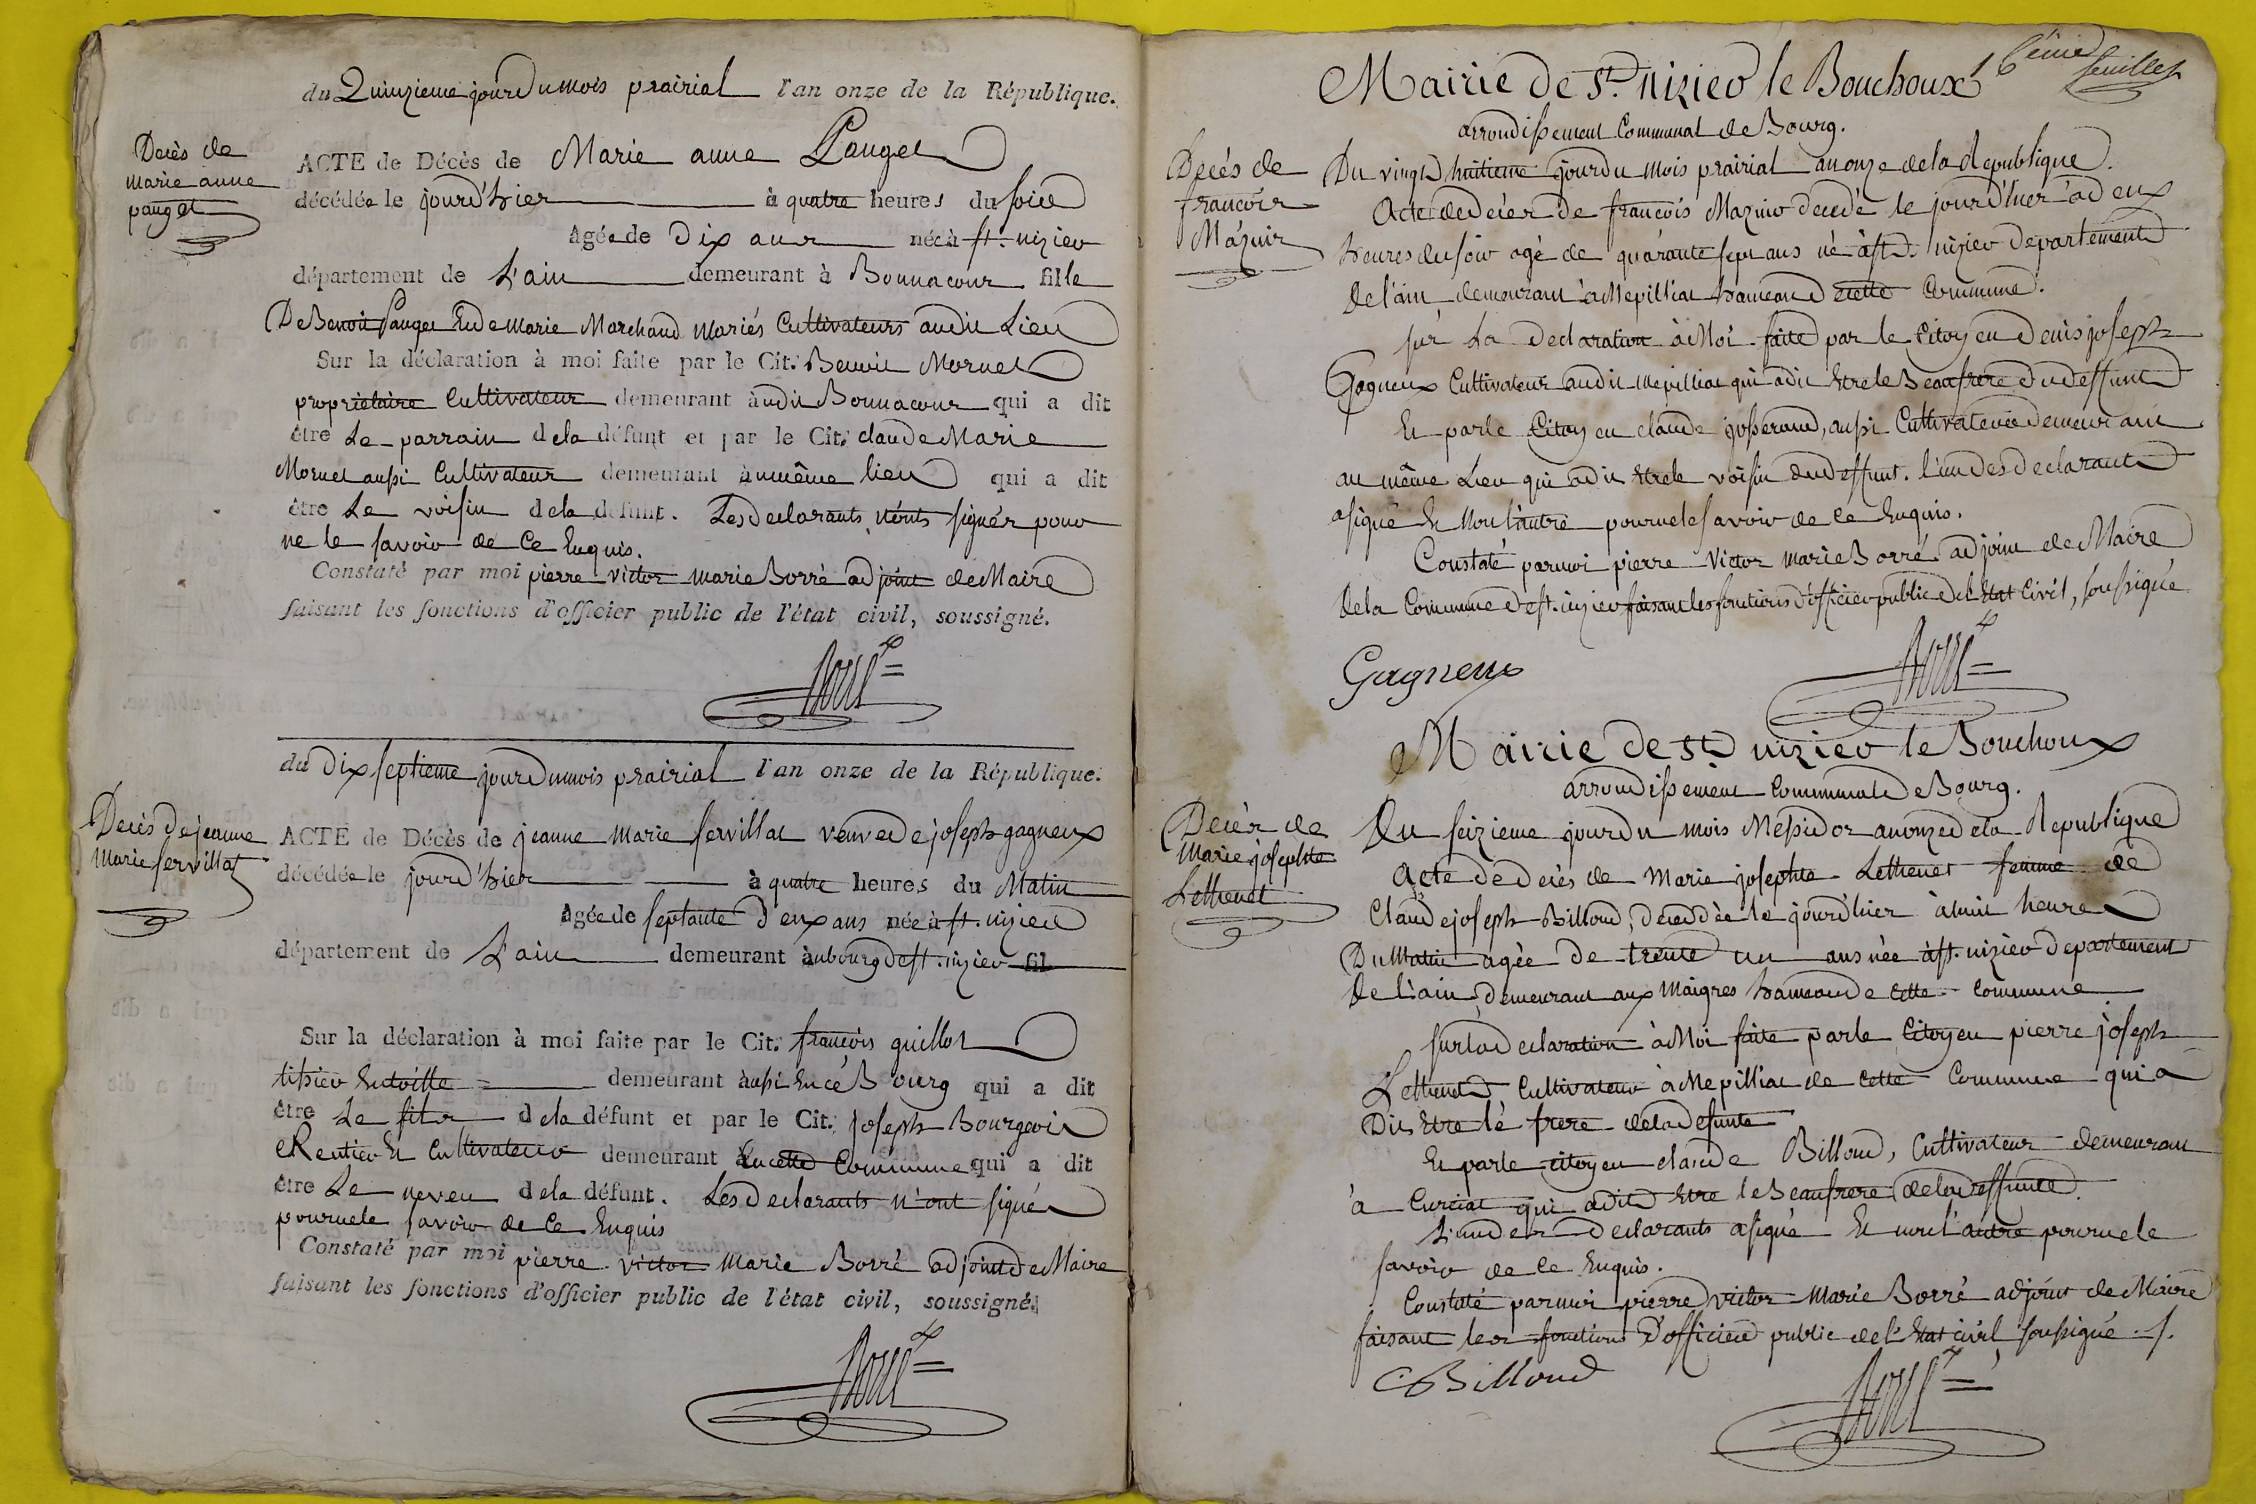 du Quinzieme jour du mois prairial l'an onze de la République.
Decès de
marie anne
pauget
ACTE de Décès de Marie anne Pauget
décédée le jourd'hier à quatre heures du soir
agée de dix ans née à st. nizier
département de L'ain demeurant à Bonnacour fille
De Benoit Pauget Et de Marie Marchand mariés Cultivateurs audit Lieu
Sur la déclaration à moi faite par le Cit. Benoit Mornet
propriétaire Cultivateur demeurant à udit Bonnacour qui a dit
être Le parrain de la défunt et par le Cit. claude Marie
Mornet aussi Cultivateur demeurant à u même lieu qui a dit
être Le voisin de la défunt. Les declarants n'onts signés pour
ne le savoir de Ce Enquis.
Constaté par moi pierre victor marie Borré adjoint de Maire
faisant les fonctions d'officier public de l'état civil, soussigné.
Borré
du Dix septieme jour du mois prairial l'an onze de la République.
Decès de jeanne
Marie servillat
ACTE de Décès de jeanne marie servillat veuve de joseph gagneux
décédée le jourd'hier à quatre heures du Matin
agée de septante d'eux ans née à st. nizier
département de L'ain demeurant à u bourg de st. nizier fil
Sur la déclaration à moi faite par le Cit. françois guillot
tissier En toille demeurant à ussi En cé Bourg qui a dit
être Le fils de la défunt et par le Cit. joseph Bourgeois
Rentier Et Cultivateur demeurant à En cette Commune qui a dit
être Le neveu de la défunt. Les Declarants n'ont signés
pour ne le savoir de Ce Enquis
Constaté par moi pierre victor Marie Borré adjoint de Maire
faisant les fonctions d'officier public de l'état civil, soussigné.
Borré
16ème feuillet
Mairie de St. nizier le Bouchoux
arrondissement Communal de Bourg.
Decés de
françois
Mázuir
Du vingt huitieme jour du mois prairial an onze de la Republique.
Acte de decès de françois Mazuir decedé le jourd'hier à deux
heures du soir agé de quarante sept ans né à st. nizier departement
de l'ain demeurant à Mepilliat hameau de cette Commune.
sur La declaration à Moi faite par le Citoyen denis joseph
Gagneux Cultivateur audit mepilliat qui a dit Etre le Beaufrere du deffunt
Et par le Citoyen claude josserand, aussi Cultivateur demeurant
au même Lieu qui a dit Etre le voisin du deffunt. l'un des declarants
a signé Et Non l'autre pour ne le savoir de ce Enquis.
Constaté par moi pierre victor marie Borré adjoint de Maire
de la Commune de st. nizier faisant les fonctions d'officier public de l'Etat Civil, soussigné
Gagneux
Borré
Mairie de St. nizier le Bouchoux
arrondissement Communal de Bourg.
Decès de
Marie josephte
Lethenet
Du seizieme jour du mois Messidor an onze de la Republique
Acte de decès de marie josephte Lethenet femme de
Claude joseph Billoud, decedée le jourd'hier à huit heures
Du Matin agée de trente un ans née à st. nizier departement
de l'ain, demeurant aux Maigres hameau de cette commune
sur la declaration à Moi faite par le Citoyen pierre joseph
Lethenet, Cultivateur à Mepilliat de cette Commune qui a
Dit Etre le frere de la defunte
Et par le citoyen claude Billoud, Cultivateur demeurant
à Curciat qui a dit Etre le Beaufrere de la deffunte.
L'un des declarants a signé Et non l'autre pour ne le
savoir de Ce Enquis.
Constaté par moi pierre victor Marie Borré adjoint de Maire
faisant les fonctions D'officier public de l'Etat civil soussigné
C. Billoud
Borré